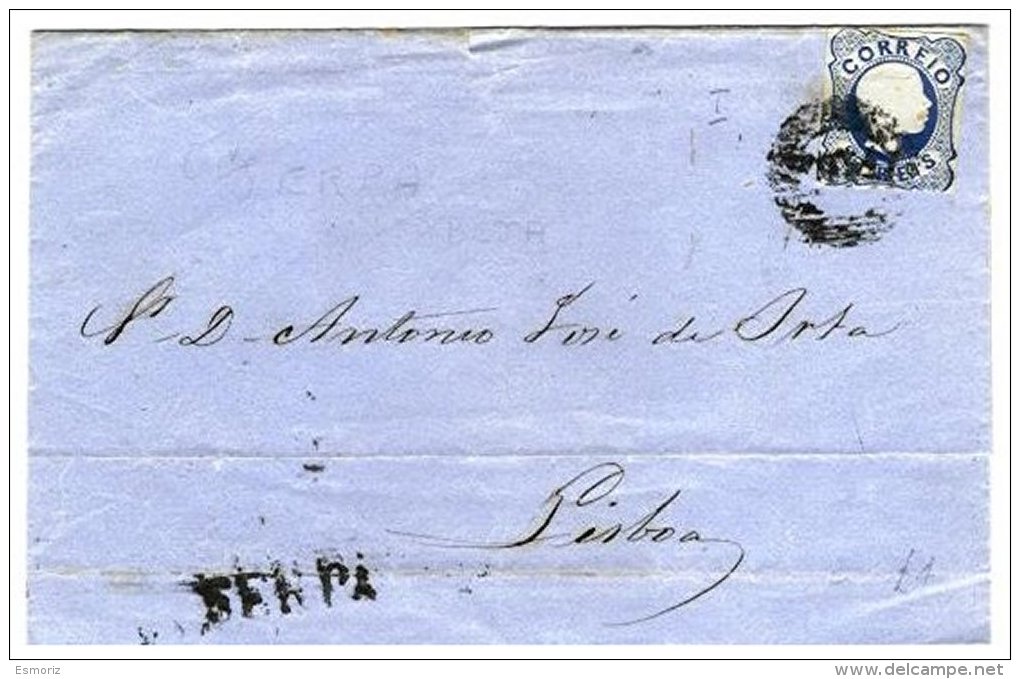 CORREIO
REIS
I
Sr. D. Antonio José de Orta
Lisboa
SERPA
Esmoriz
www.delcampe.net